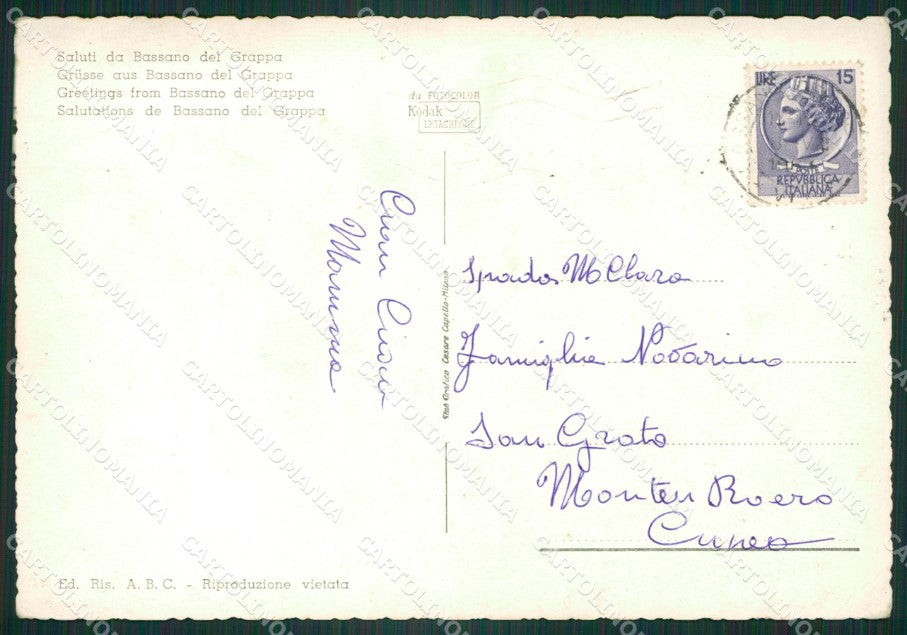 Saluti da Bassano del Grappa
Grüsse aus Bassano del Grappa
Greetings from Bassano del Grappa
Salutations de Bassano del Grappa
da FOTOCOLOR
Kodak
EKTACHROME
LIRE 15
REPVBBLICA
ITALIANA
Ciao Ciao
Mamma
Stab. Grafico Cesare Capello - Milano
M Clara
Famiglia Novarino
San Grato
Monteu Roero
Cuneo
Ed. Ris. A. B. C. - Riproduzione vietata
CARTOLINOMANIA